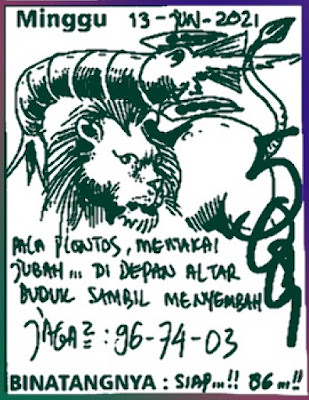 Minggu 13-JUN-2021
PALA PLONTOS, MEMAKAI
JUBAH... DI DEPAN ALTAR
DUDUK SAMBIL MENYEMBAH
JAGA2 = : 96-74-03
BINATANGNYA : SIAP...!! 86...!!